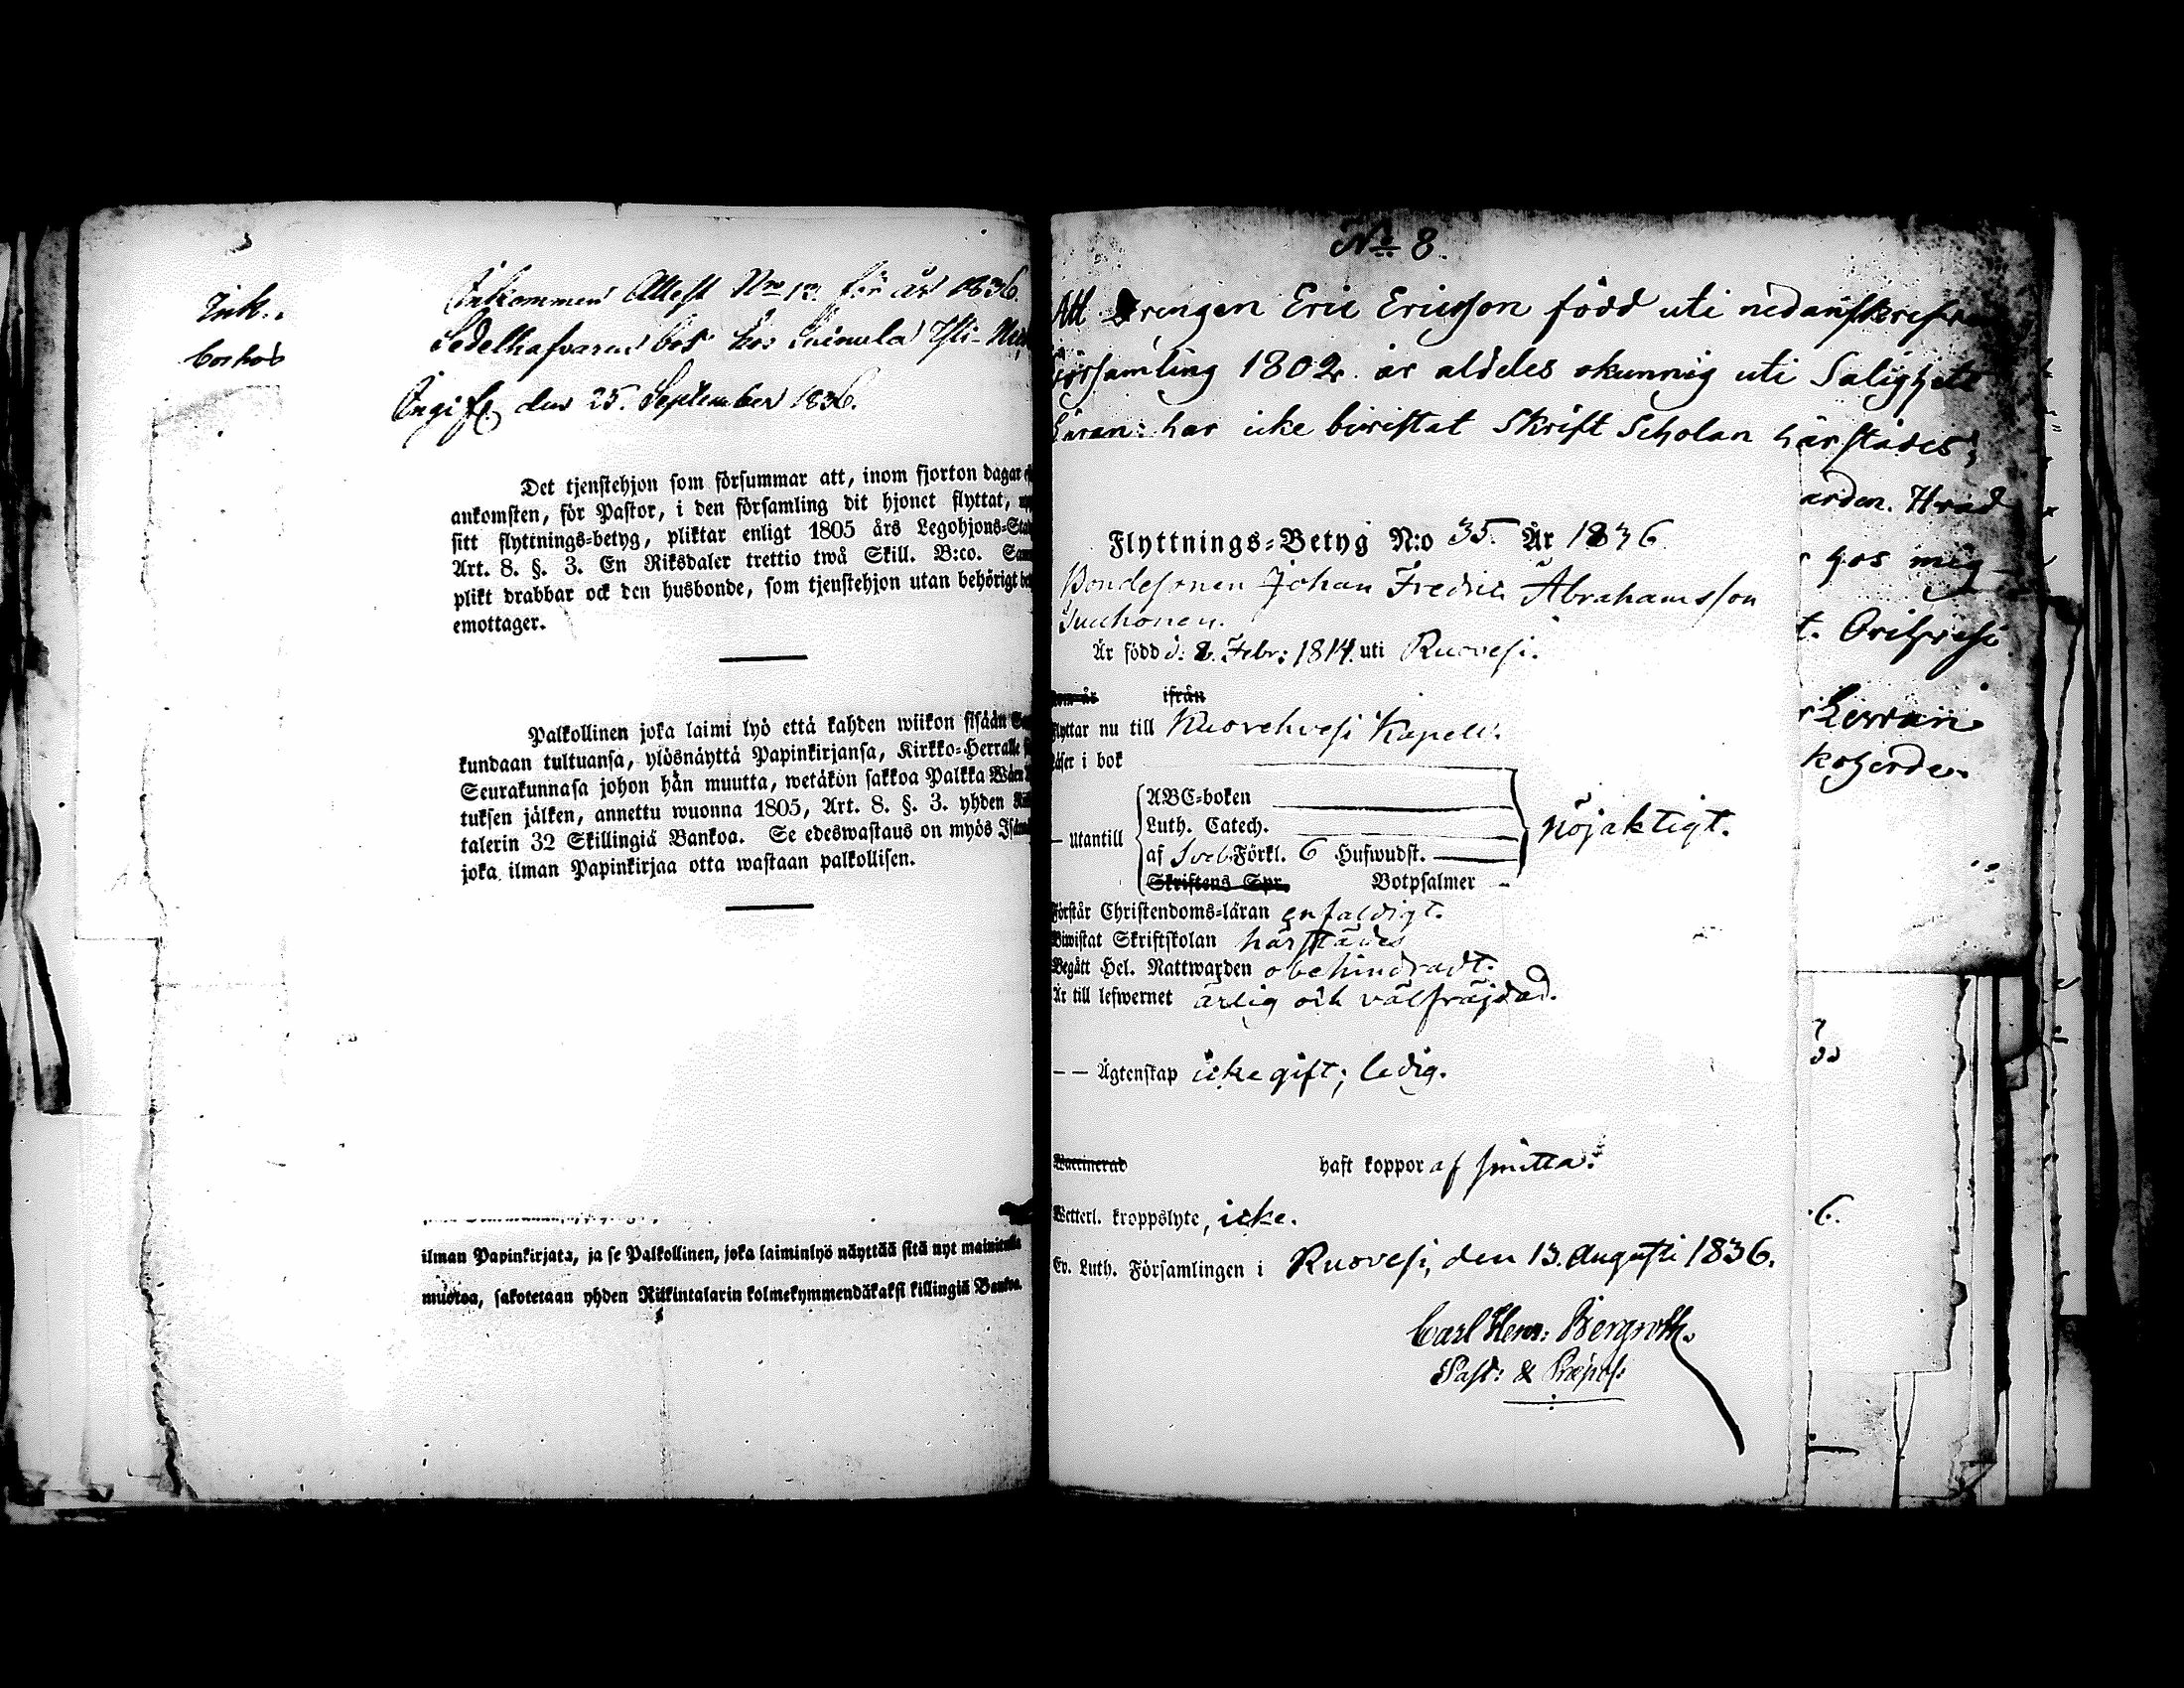 Ink..
bos hos
Inkommen Attest Nro 12. för år 1836.
Sedelhafvaren bor hos Suinula Yli-
Ängi den 25. September 1836.
Det tjenstehjon som försummar att, inom fjorton dagar
ankomsten, för Pastor, i den församling dit hjonet flyttat,
sitt flyttnings-betyg, pliktar enligt 1805 års Legohjons-Sta
Art. 8. §. 3. En Riksdaler trettio twå Skill. B:co. Sam
plikt drabbar ock den husbonde, som tjenstehjon utan behörigt be
emottager.
Palkollinen joka laimi lyö että kahden wiikon sisään
kundaan tultuansa, ylösnäyttä Papinkirjansa, Kirkko-Herralle
Seurakunnasa johon hän muutta, wetäkön sakkoa Palkka Wäen
tuksen jälken, annettu wuonna 1805, Art. 8. §. 3. yhden Rik
talerin 32 Skillingiä Bankoa. Se edeswastaus on myös Isän
joka ilman Papinkirjaa otta wastaan palkollisen.
ilman Papinkirjata, ja se Palkollinen, joka laiminlyö näyttää sitä nyt mainitulla
muotoa, sakotetaan yhden Riikintalarin kolmekymmendäkaksi killingiä Bankoa.
No 8.
Att Drengen Eric Ericsson född uti nedanskrefne
församling 1802. är aldeles okunnig uti Salighets
Läran: har icke bivistat Skrift Scholan härstädes;
arden. Hvad
r hos mig
t. Orihvesi
koherde.
Flyttnings-Betyg N:o 35. År 1836
Bondesonen Johan Fredric Abrahamsson
Suuhonen.
Är född d: 8. Febr: 1814. uti Ruovesi.
Kom år ifrån
Flyttar nu till Kuorehvesi Kapell.
Läser i bok
— Utantill
ABC-boken
Luth. Catech.
af Sveb. Förkl. 6 Hufwudst.
Skriftens Spr. Botpsalmer
nöjaktigt.
Förstår Christendoms-läran enfaldigt.
Biwistat Skriftskolan härstädes
Begått Hel. Nattwarden obehindradt.
Är till lefwernet ärlig och välfräjdad.
— — Ägtenskap icke gift; ledig.
Waccinerad haft koppor af smitta.
Wetterl. kroppslyte, icke.
Ev. Luth. Församlingen i Ruovesi, den 13. Augusti 1836.
Carl Henr: Bergroth.
Past: & Præpos:
6.